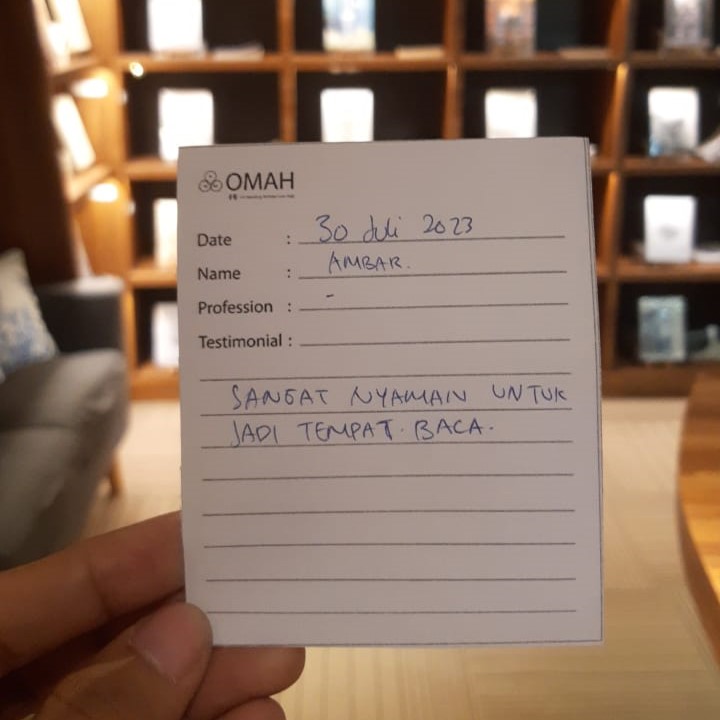 OMAH
Date : 30 Juli 2023
Name : AMBAR.
Profession : -
Testimonial :
SANGAT NYAMAN UNTUK
JADI TEMPAT BACA.